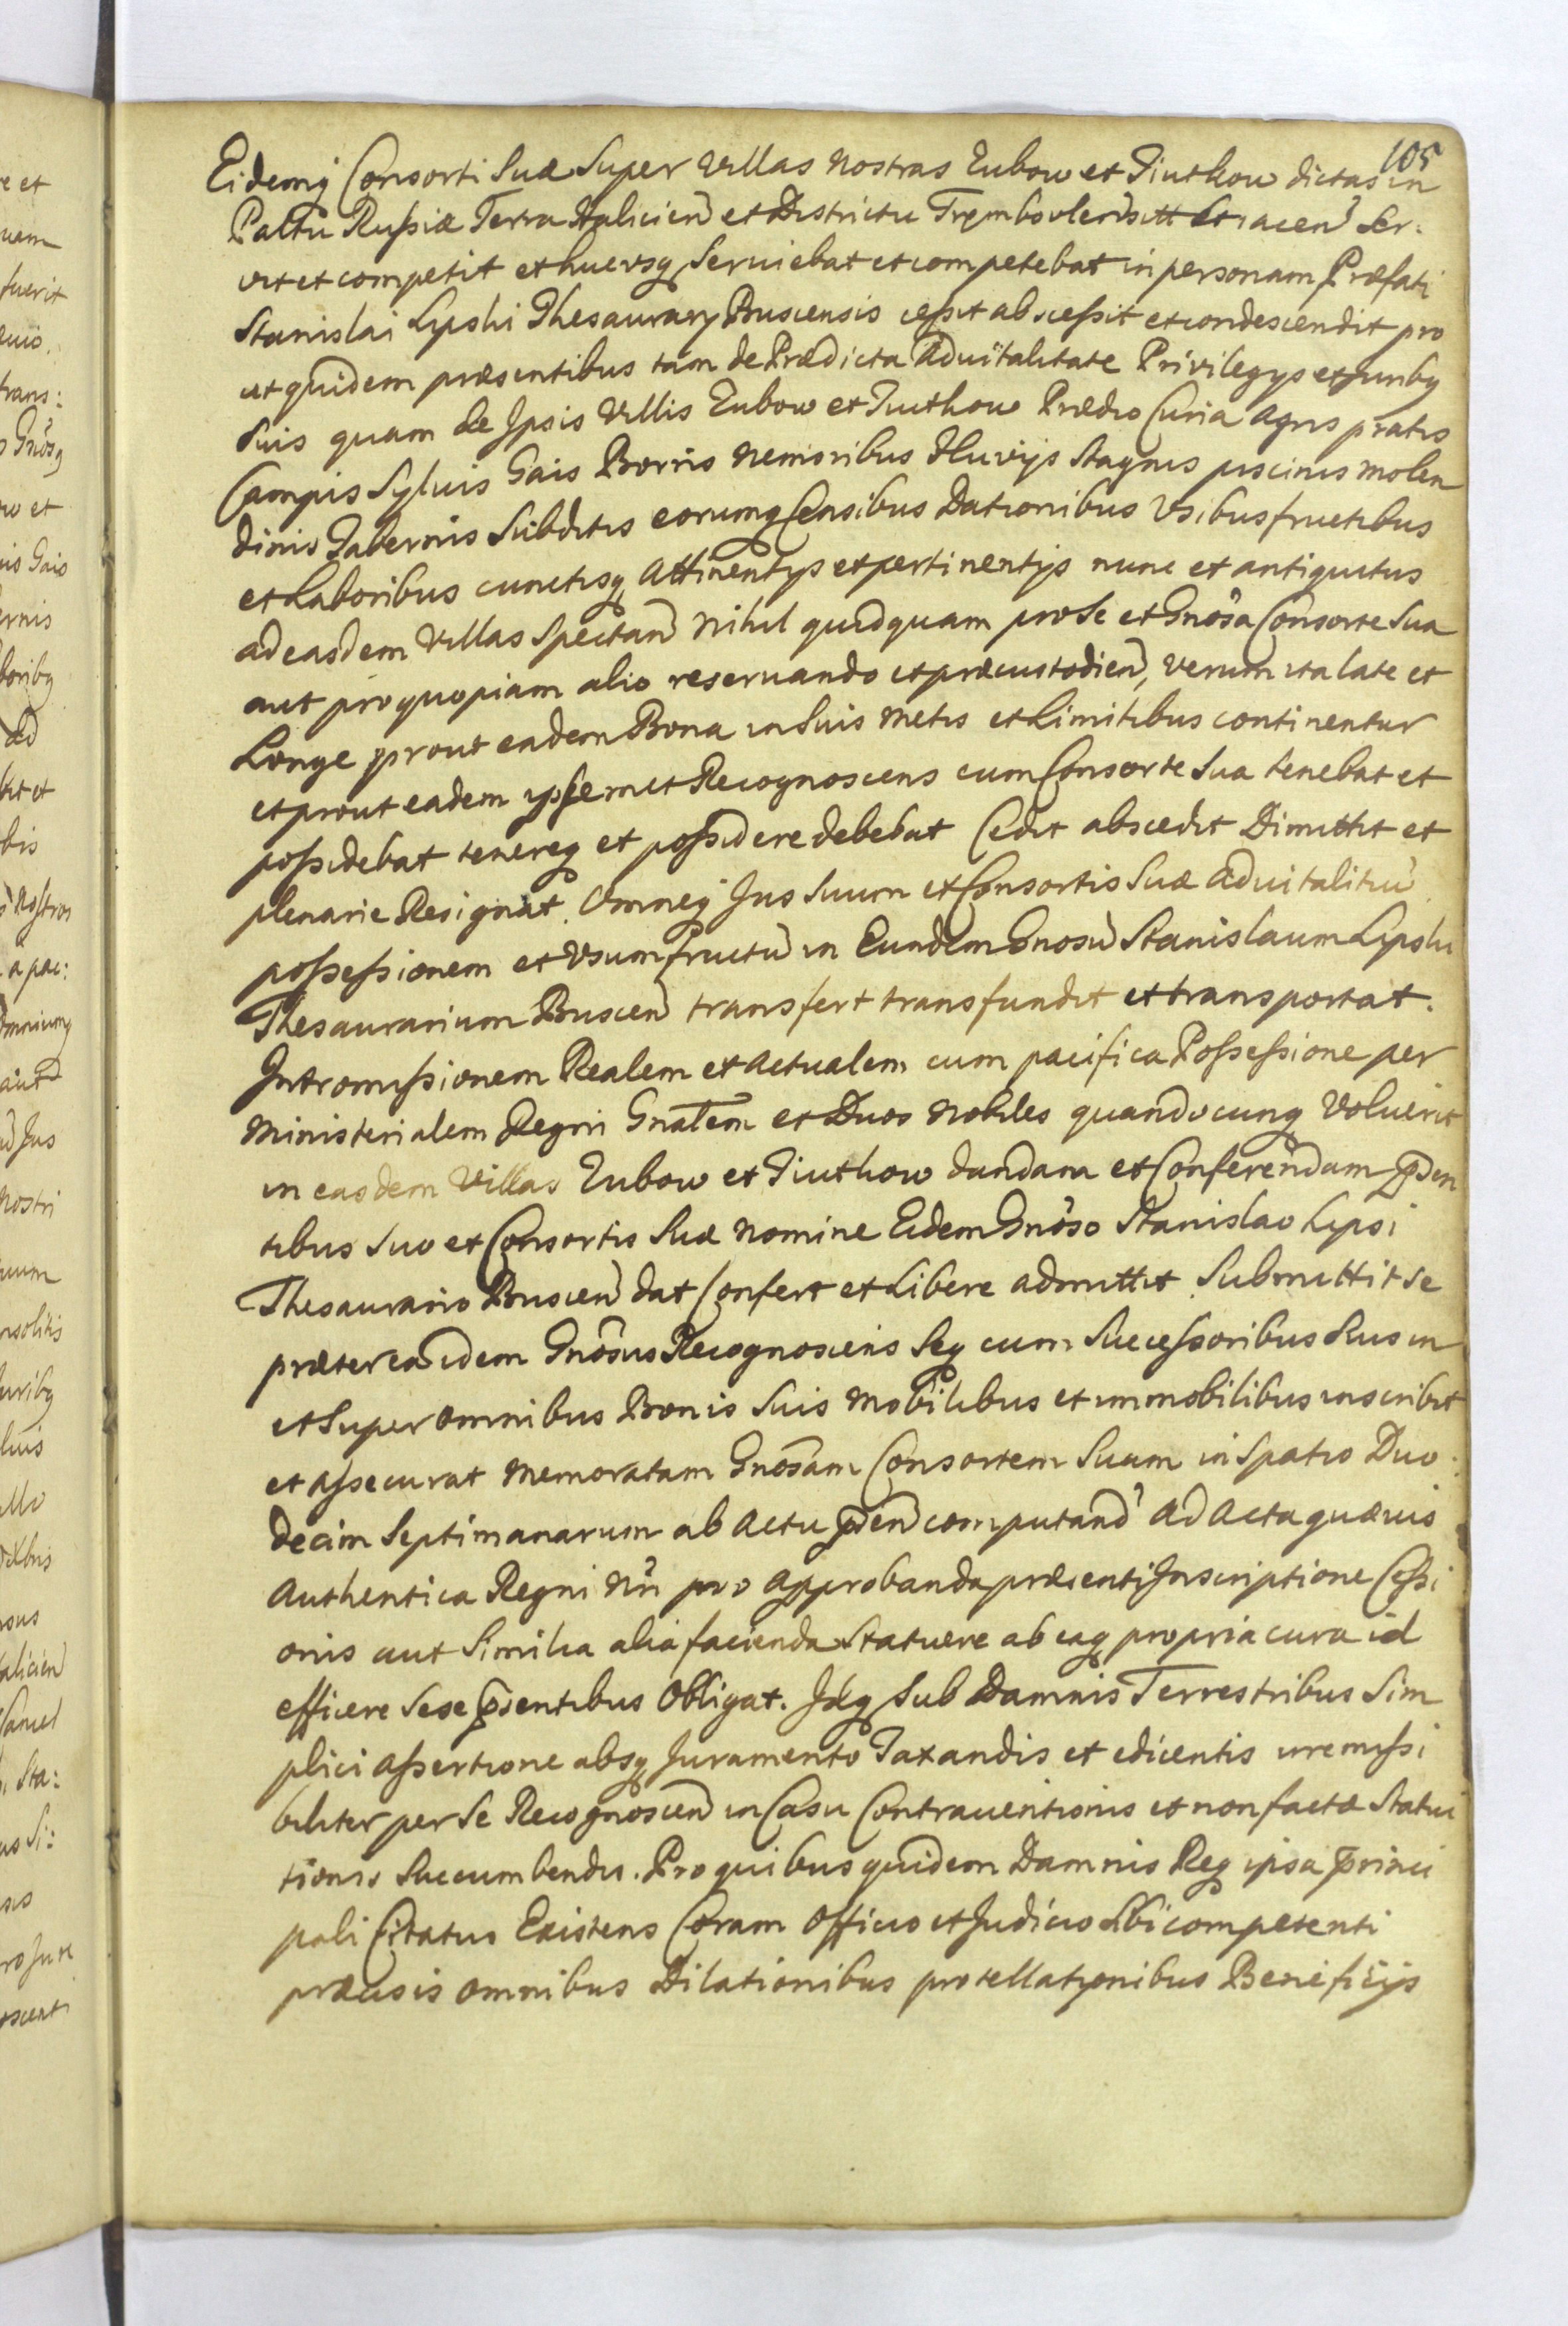 105
Eidemq Consorti Suæ Super villas nostras Zubow et Tiuthow dictas in
Paltu Russiæ Terra Haliciem et Districtu Trembovlen sitt et iacen Ser:
vit et competit et hucusq Seruiebat et competebat in personam Præfati
Stanislai Lipski Thesaurary Buscensis cessit abscessit et condescendit pro
ut quidem præsentibus tam de Prædicta Aduitalitate Privilegys et Juribq
Suis quam de Ipsis Villis Zubow et Tiuthow Prædio Curia Agris pratis
Campis Syluis Gais Borris Nemoribus Fluvijs Stagnis piscinis molen
dinis Tabernis Subditis eorumq Censibus Dationibus Vsibusfructibus
et Laboribus cunctisq Attinentys et pertinentijs nunc et antiquitus
ad easdem Villas Spectan Nihil quidquam pro Se et Gnosa Consorte Sua
aut pro quopiam alio reseruando et præcustodien, verum ita late et
Longe prout eadem Bona in Suis metis et Limitibus continentur
et prout eadem ipsemet Recognoscens cum Consorte Sua tenebat et
possidebat tenereq et possidere debebat Cedit abscedit Dimittit et
plenarie Resignat. Omneq Jus Suum et Consortis Suæ Aduitalitiu
possessionem et Vsumfructu in Eundem Gnosu Stanislaum Lipski
Thesaurarium Buscen transfert transfundit et transportat.
Intromissionem Realem et Actualem cum pacifica Possessione per
Ministerialem Regni Gnalem et Duos Nobiles quandocunq Voluerit
in easdem Villas Zubow et Tiuthow dandam et Conferendam Psen
tibus Suo et Consortis Suæ Nomine Eidem Gnoso Stanislao Lipsi
Thesaurario Buscen dat Confert et Libere admittit. Submittit se
præterea idem Gnosus Recognoscens Seq cum Successoribus Suis in
et Super omnibus Bonis Suis Mobilibus et immobilibus inscribit
et Assecurat Memoratam Gnosam Consortem Suam in Spatio Duo:
decim Septimanarum ab Actu psen computand Ad Acta quævis
Authentica Regni Nri pro Approbanda præsenti Inscriptione Cessi
onis aut Similia alia facienda Statuere ab eaq propria cura id
efficere Sese psentibus Obligat. Idq Sub Damnis Terrestribus Sim
plici Assertione absq Juramento Taxandis et edicentis irremissi
biliter per Se Recognoscen in Casu Contrauentionis et non factæ Statui
tionis Succumbendis. Pro quibus quidem Damnis Req ipsa princi
pali Citatus Existens Coram Officio et Judicio Sibi competenti
præcisis omnibus Dilationibus protellationibus Beneficijs